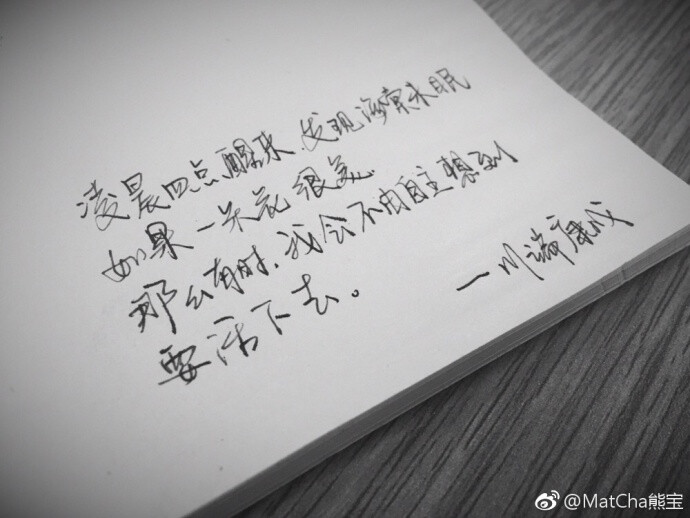 凌晨四点醒来,发现海棠未眠
如果一朵花很美
那么有时,我会不由自主想到
要活下去。
—川端康成
@MatCha熊宝